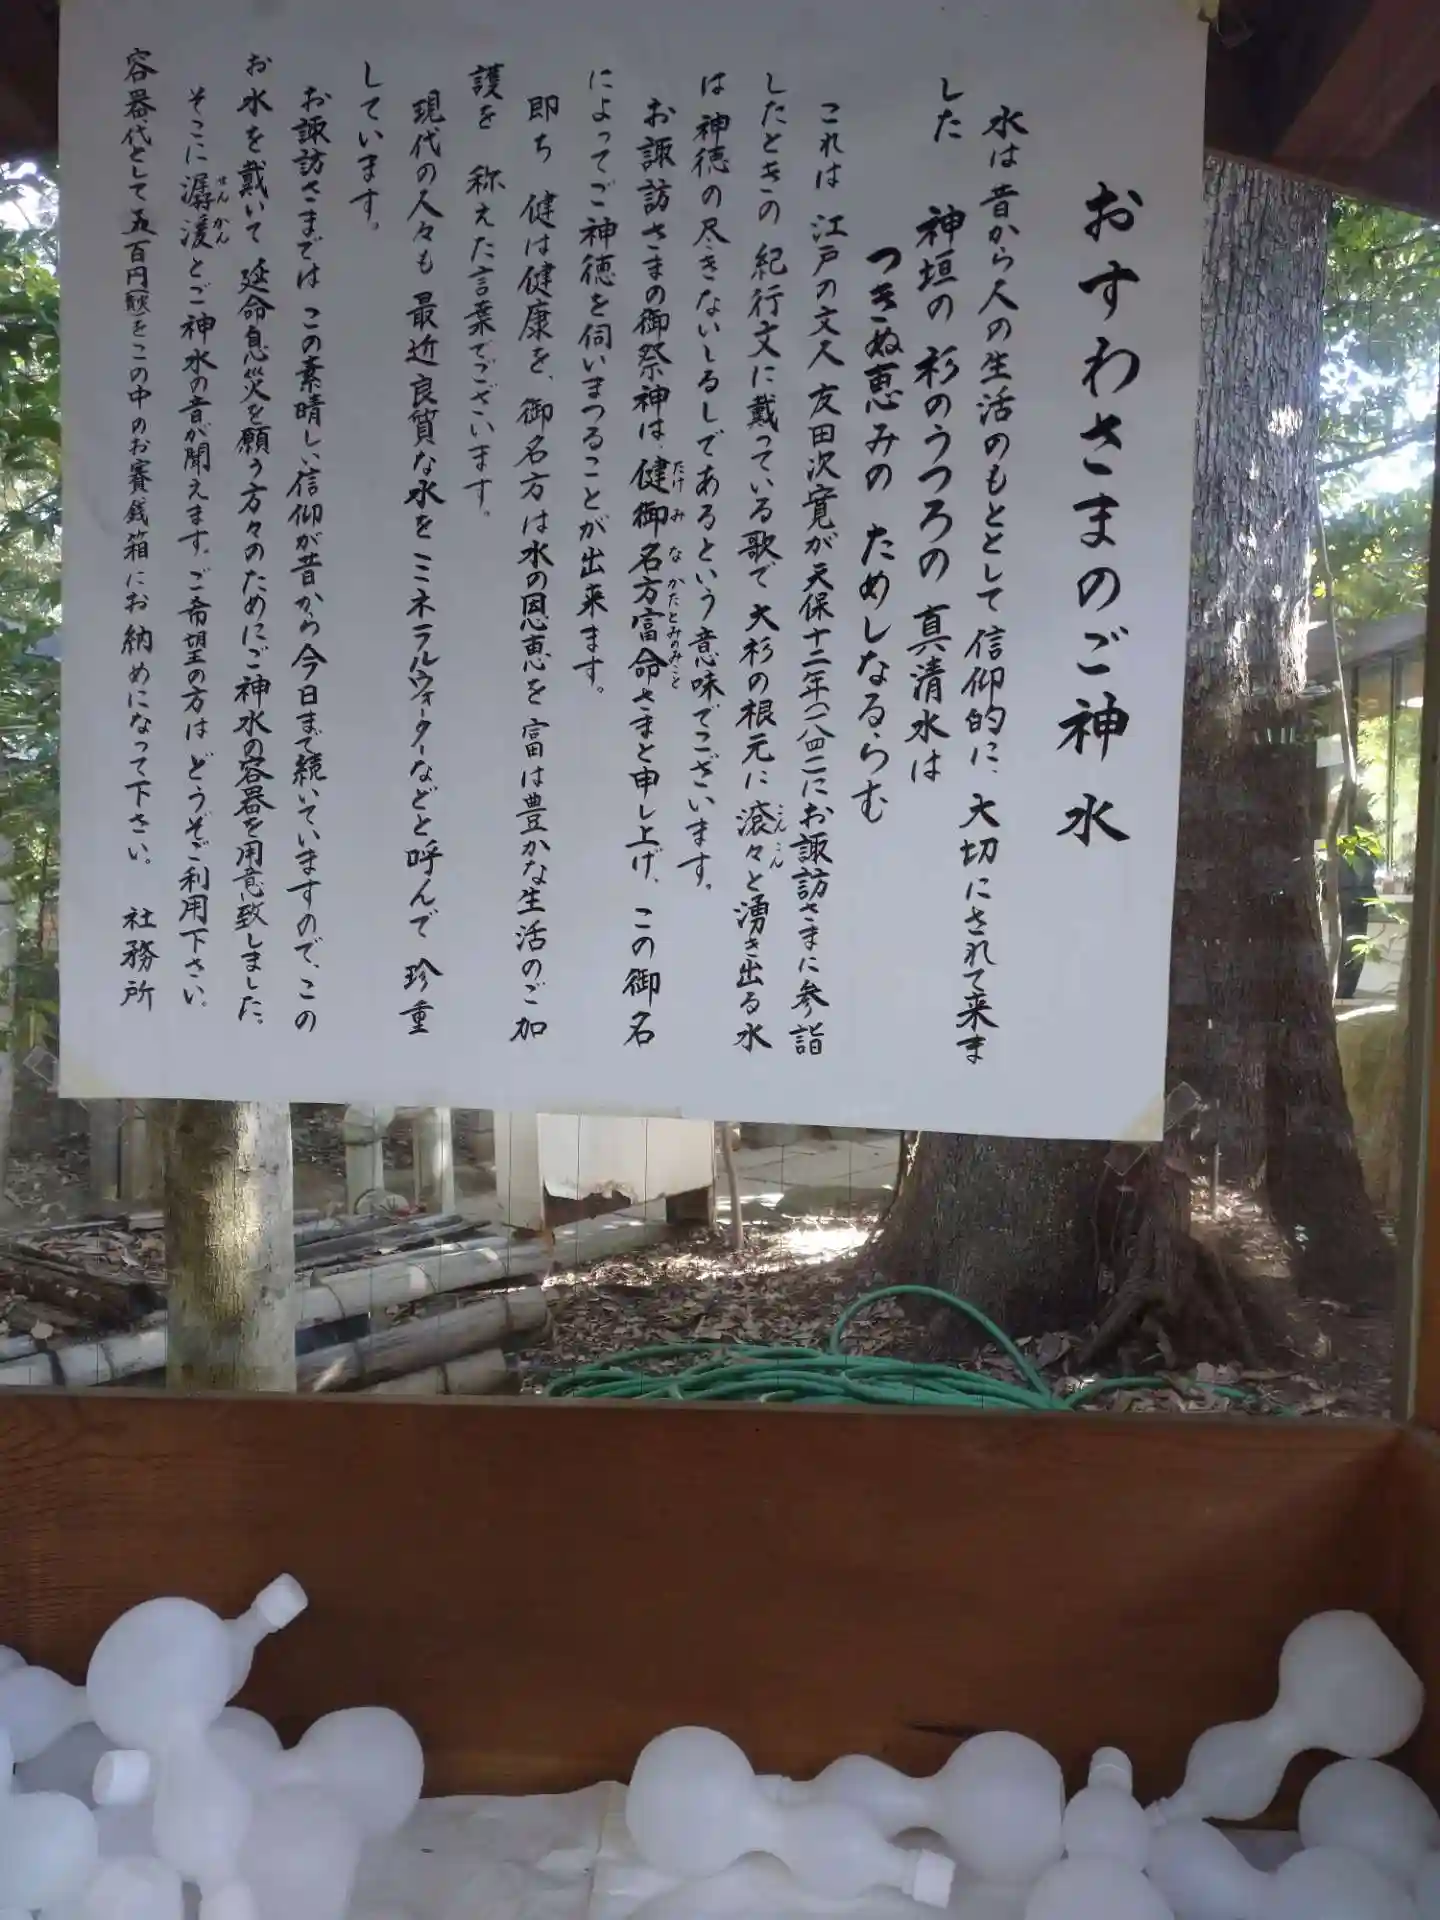 おすわさまのご神水
水は昔から人の生活のもととして信仰的に、大切にされて来ま
した
神垣の 杉のうつろの 真清水は
つきぬ恵みの ためしなるらむ
これは 江戸の文人 友田次寛が天保十二年(一八四二)にお諏訪さまに参詣
したときの 紀行文に戴っている歌で 大杉の根元に 滾々と湧き出る水
は 神徳の尽きないしるしであるという意味でございます。
お諏訪さまの御祭神は 健御名方富命さまと申し上げ、この御名
によってご神徳を伺いまつることが出来ます。
即ち 健は健康を、御名方は水の恩恵を 富は豊かな生活のご加
護を 称えた言葉でございます。
現代の人々も 最近良質な水を ミネラルウォーターなどと呼んで 珍重
しています。
お諏訪さまでは この素晴しい信仰が昔から今日まで続いていますので、この
お水を戴いて 延命息災を願う方々のためにご神水の容器を用意致しました。
そこに潺湲とご神水の音が聞えます。ご希望の方は どうぞご利用下さい。
容器代として五百円をこの中のお賽銭箱にお納めになって下さい。 社務所